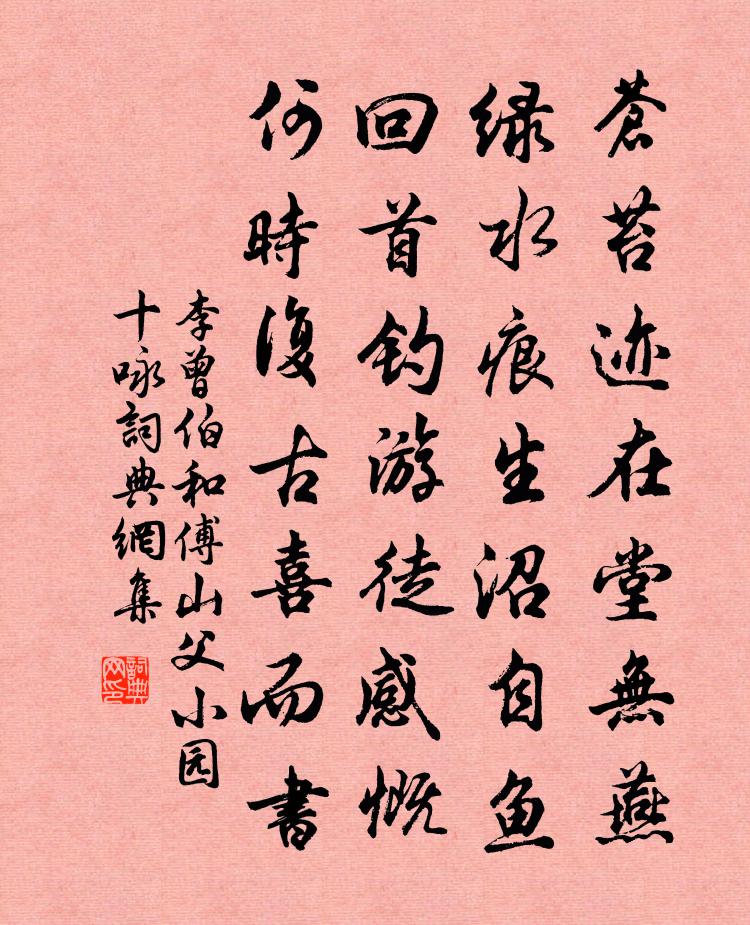 蒼苔迹在堂無燕
緑水痕生沼自鱼
回首钓游徒感慨
何時復古喜而書
李曾伯和傅山父小园
十咏詞典網集
詞典网印